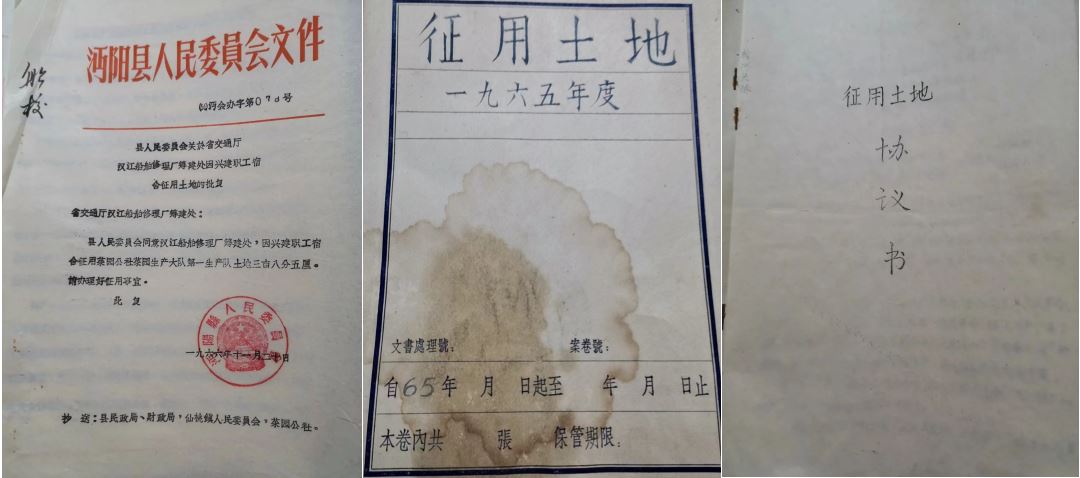 沔阳县人民委員会文件
(66)沔会办字第070号
县人民委員会关於省交通厅
汉江船舶修理厂筹建处因兴建职工宿
舍征用土地的批复
省交通厅汉江船舶修理厂筹建处：
县人民委員会同意汉江船舶修理厂筹建处，因兴建职工宿
舍征用菜园公社菜园生产大队第一生产队土地三亩八分五厘。
請办理好征用事宜。
此 复
沔陽縣人民委員會
一九六六年十一月二十日
抄 送：县民政局、財政局，仙桃鎮人民委員会，菜园公社。
征用土地
一九六五年度
文書處理號： 案卷號：
自65年 月 日起至 年 月 日止
本卷內共 張 保管期限：
征用土地
协
议
书